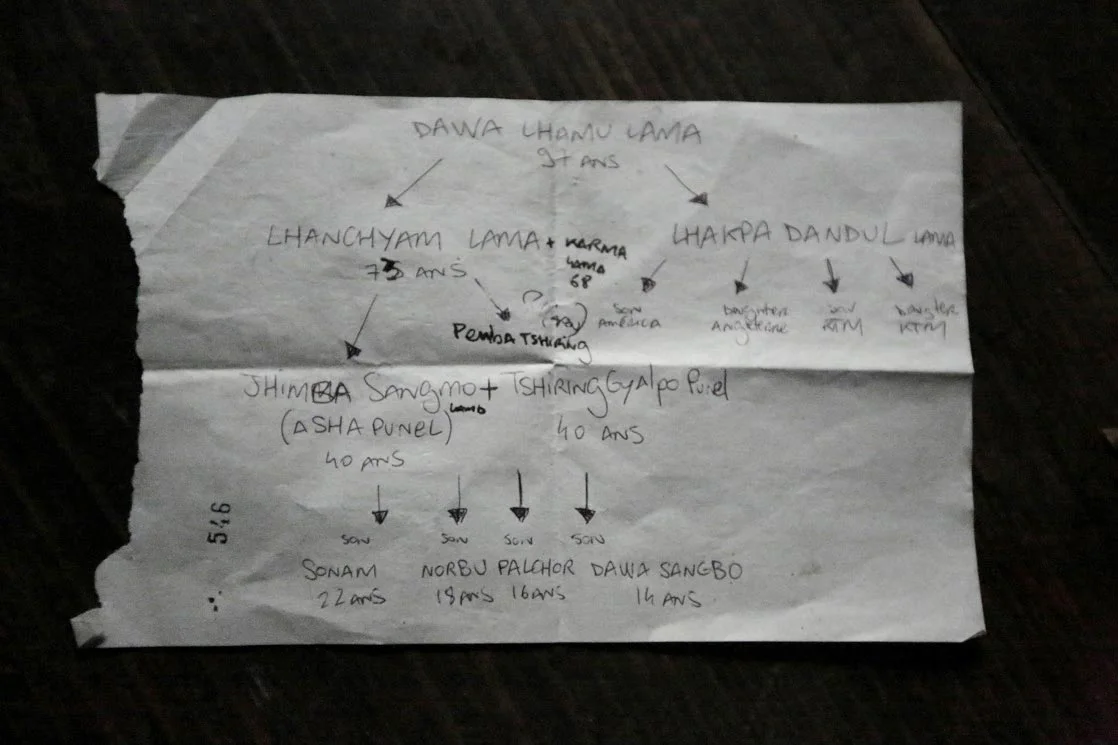 DAWA LHAMU LAMA
97 ANS
LHANCHYAM LAMA + KARMA LAMA 68
75 ANS
LHAKPA DANDUL LAMA
SON AMERICA
Daughter
SON KTM
KTM
Pemba TSHIRING
JHIMBA Sangmo + TSHIRING Gyalpo
LAMA
(ASHA PUNEL)
40 ANS
40 ANS
SON SON SON SON
SONAM NORBU PALCHOR DAWA SANGBO
22 ANS 18 ANS 16 ANS 14 ANS
546